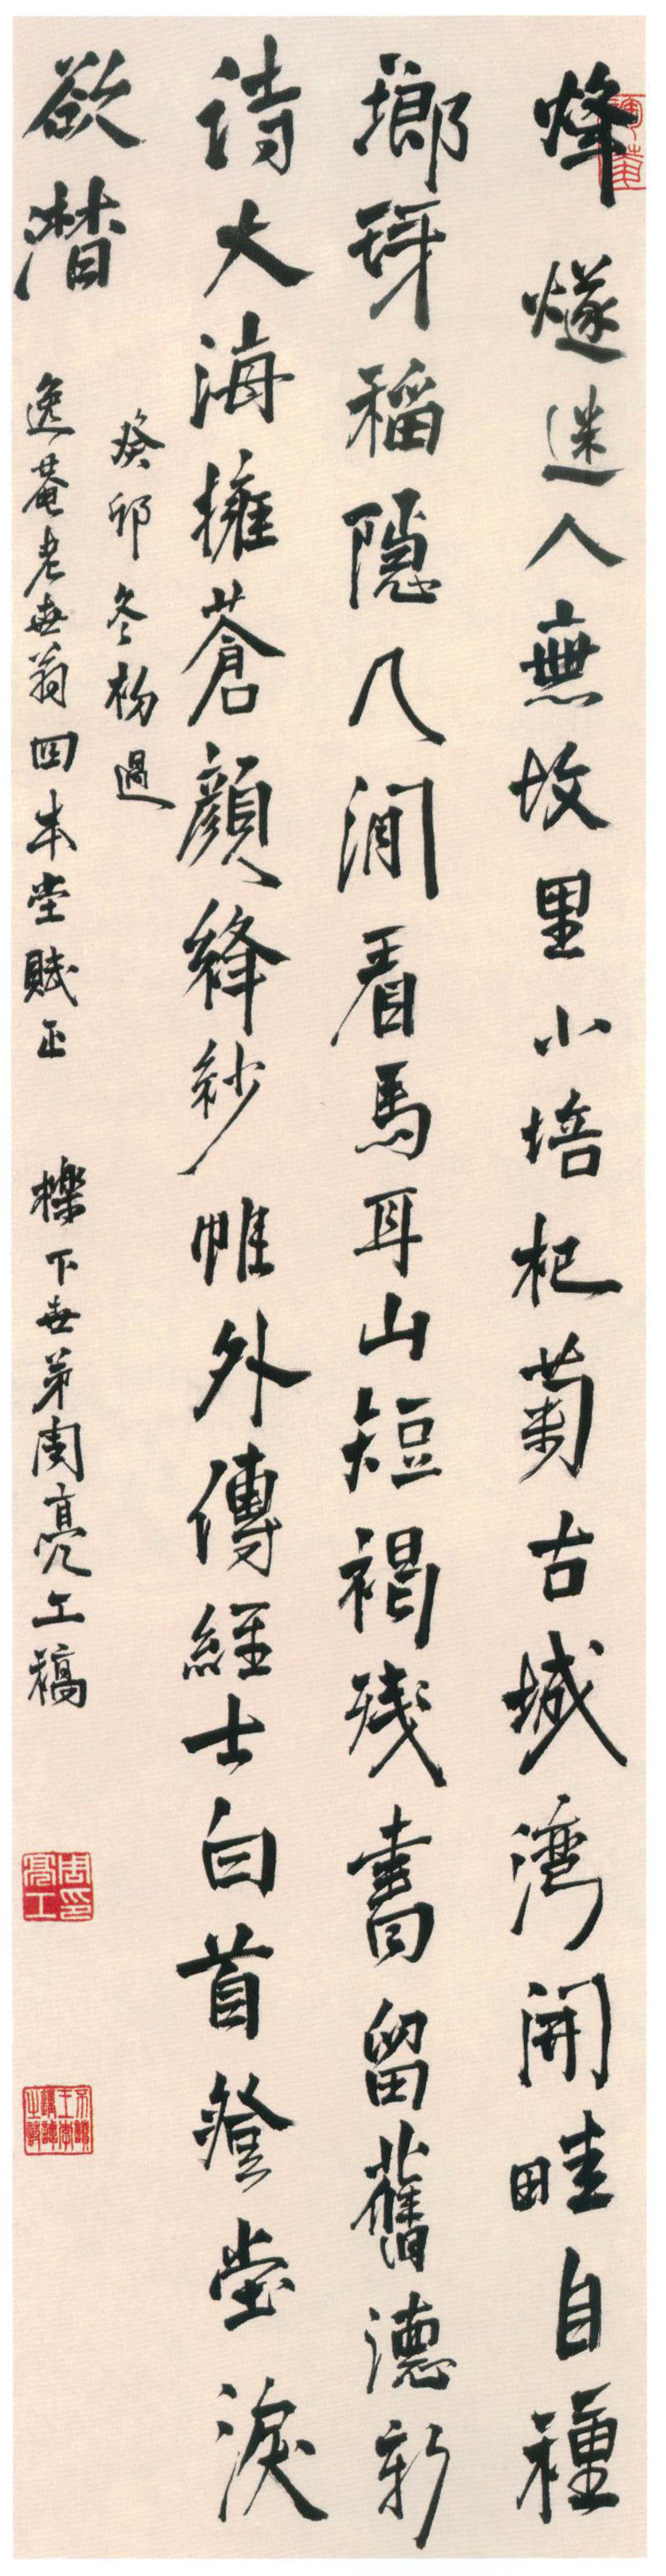 烽燧迷人無故里小培杞菊古城灣開畦自種
瑯琊稻隱几閒看馬耳山短褐殘書留舊德新
詩大海擁蒼顏絳紗帷外傳經士白首登堂淚
欲潸
癸卯冬杪過
逸菴老世翁四本堂賦正 櫟下世弟周亮工稿
周亮工印